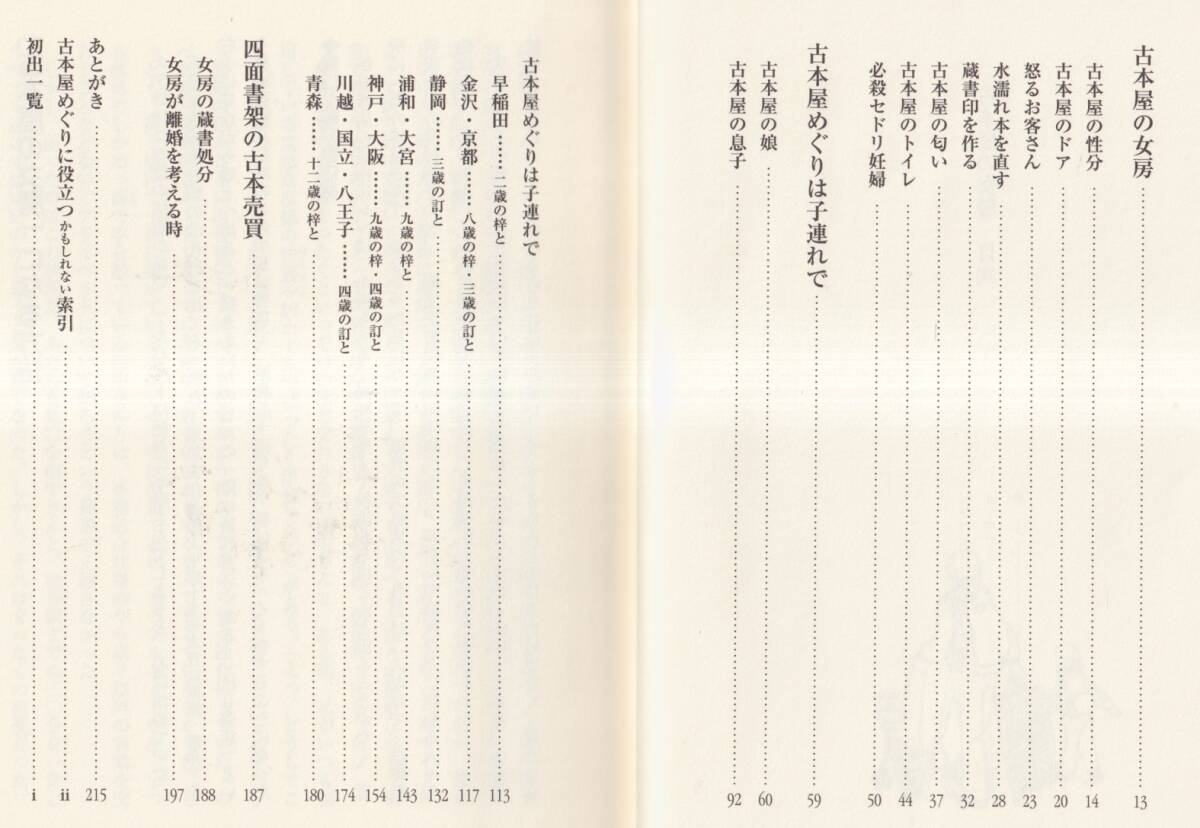 古本屋の女房 13
古本屋の性分 14
古本屋のドア 20
怒るお客さん 23
水濡れ本を直す 28
蔵書印を作る 32
古本屋の匂い 37
古本屋のトイレ 44
必殺セドリ妊婦 50
古本屋めぐりは子連れで 59
古本屋の娘 60
古本屋の息子 92
古本屋めぐりは子連れで
早稲田……二歳の梓と 113
金沢・京都……八歳の梓・三歳の訂と 117
静岡……三歳の訂と 132
浦和・大宮……九歳の梓と 143
神戸・大阪……九歳の梓・四歳の訂と 154
川越・国立・八王子……四歳の訂と 174
青森……十二歳の梓と 180
四面書架の古本売買 187
女房の蔵書処分 188
女房が離婚を考える時 197
あとがき 215
古本屋めぐりに役立つかもしれない索引 ii
初出一覧 i